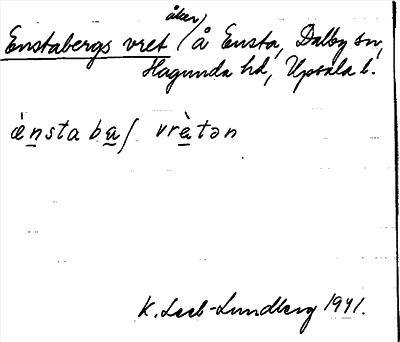 Enstabergs vret, åker, å Ensta, Dalby sn,
Hagunda hd, Upsala l.
ǽnsta baʃ vrὲtən
K. Leeb-Lundberg 1941.